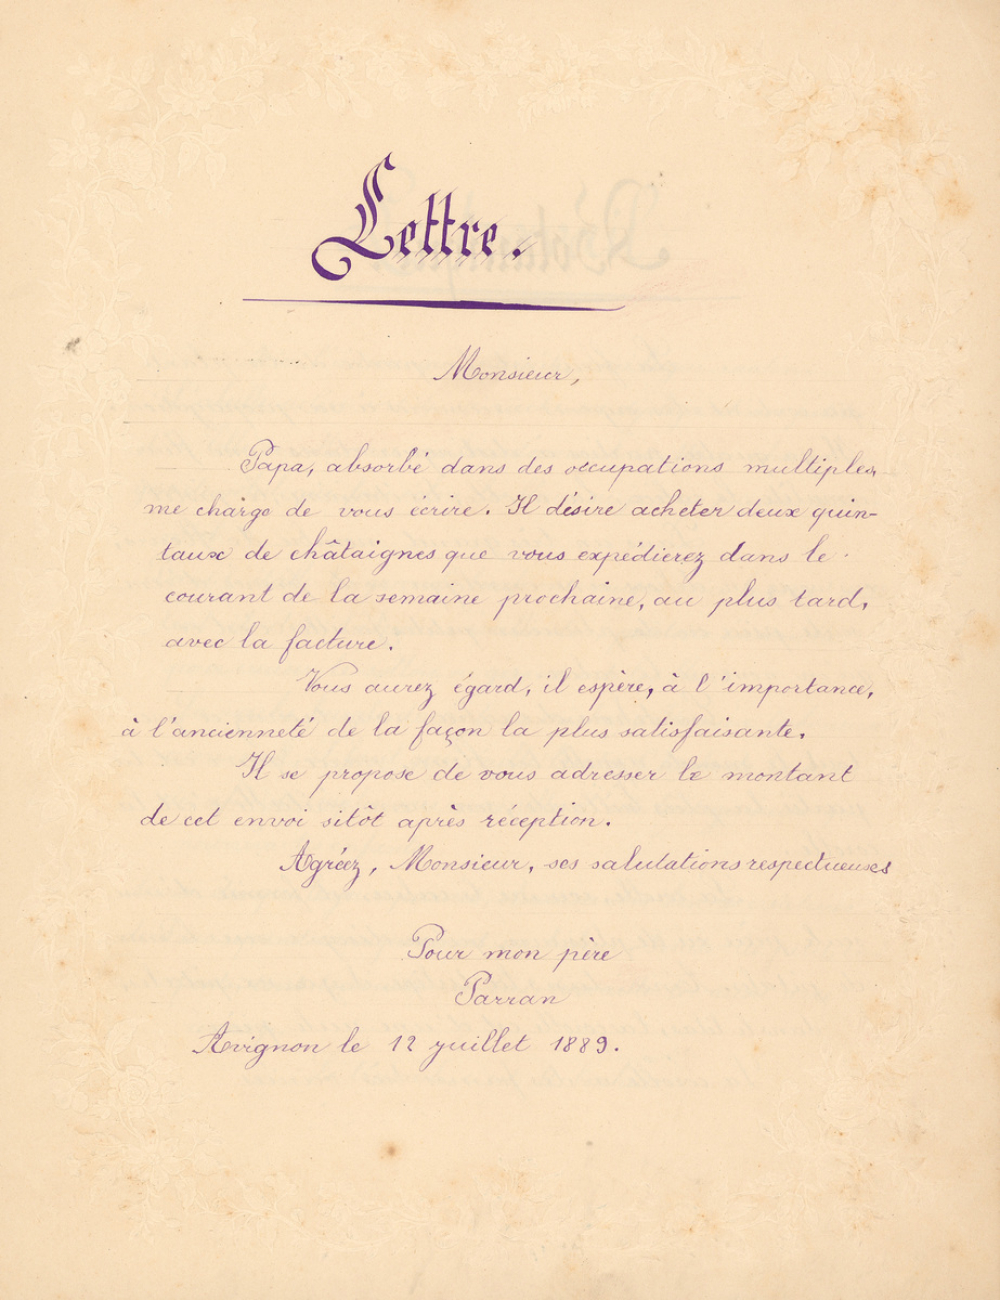 Lettre.
Monsieur,
Papa, absorbé dans des occupations multiples,
me charge de vous écrire. Il désire acheter deux quin-
taux de châtaignes que vous expédierez dans le
courant de la semaine prochaine, au plus tard,
avec la facture.
Vous aurez égard, il espère, à l'importance,
à l'ancienneté de la façon la plus satisfaisante.
Il se propose de vous adresser le montant
de cet envoi sitôt après réception.
Agréez, Monsieur, ses salutations respectueuses
Pour mon père
Parran
Avignon le 12 juillet 1889.